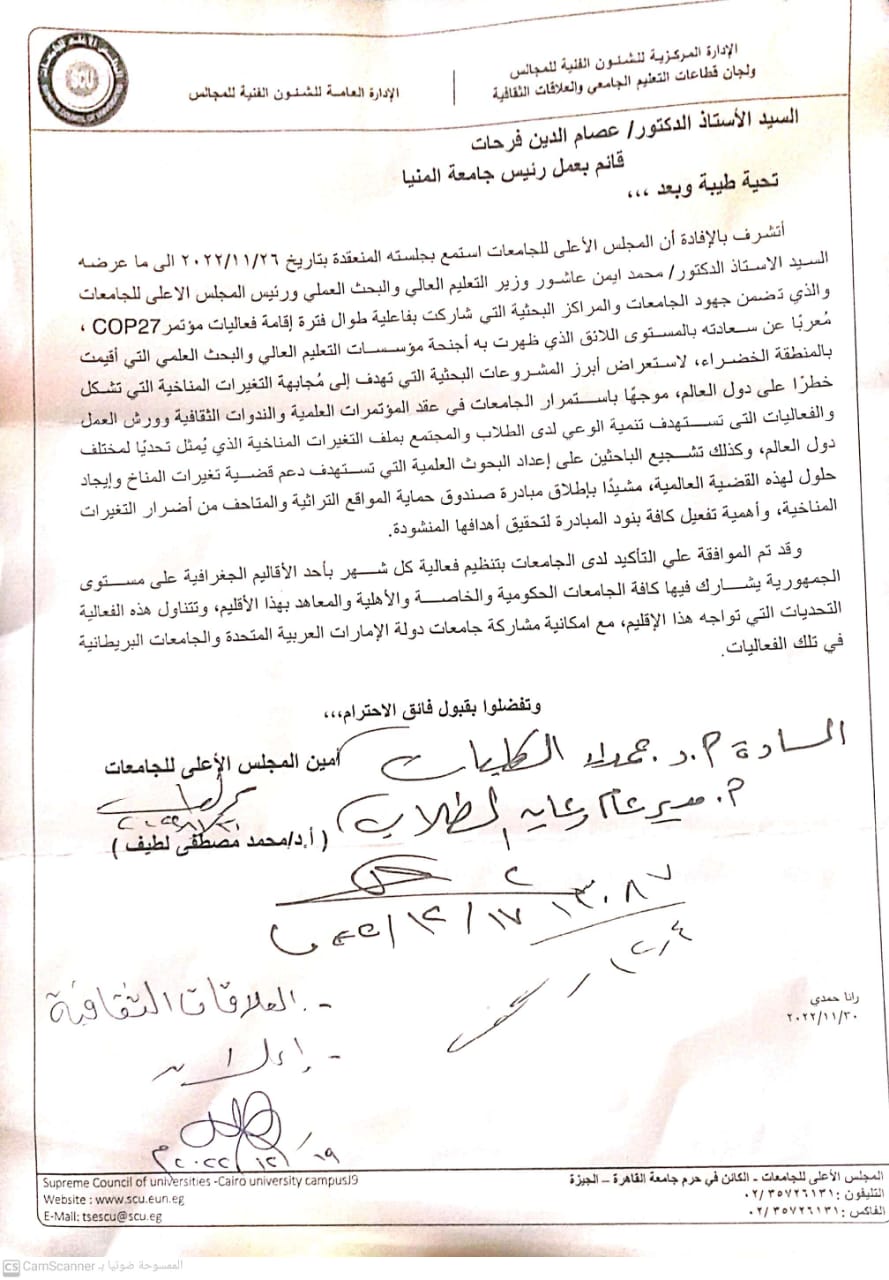 الإدارة المركزية للشئون الفنية للمجالس
ولجان قطاعات التعليم الجامعى والعلاقات الثقافية
الإدارة العامة للشئون الفنية للمجالس
SCU
السيد الأستاذ الدكتور/ عصام الدين فرحات
قائم بعمل رئيس جامعة المنيا
تحية طيبة وبعد ،،،
أتشرف بالإفادة أن المجلس الأعلى للجامعات استمع بجلسته المنعقدة بتاريخ ٢٠٢٢/١١/٢٦ الى ما عرضه
السيد الاستاذ الدكتور/ محمد ايمن عاشور وزير التعليم العالي والبحث العملي ورئيس المجلس الاعلى للجامعات
والذي تضمن جهود الجامعات والمراكز البحثية التي شاركت بفاعلية طوال فترة إقامة فعاليات مؤتمر COP27 ،
مُعربًا عن سعادته بالمستوى اللائق الذي ظهرت به أجنحة مؤسسات التعليم العالي والبحث العلمي التي أقيمت
بالمنطقة الخضراء، لاستعراض أبرز المشروعات البحثية التي تهدف إلى مُجابهة التغيرات المناخية التي تشكل
خطرًا على دول العالم، موجهًا باستمرار الجامعات في عقد المؤتمرات العلمية والندوات الثقافية وورش العمل
والفعاليات التى تستهدف تنمية الوعي لدى الطلاب والمجتمع بملف التغيرات المناخية الذي يُمثل تحديًا لمختلف
دول العالم، وكذلك تشجيع الباحثين على إعداد البحوث العلمية التي تستهدف دعم قضية تغيرات المناخ وإيجاد
حلول لهذه القضية العالمية، مشيدًا بإطلاق مبادرة صندوق حماية المواقع التراثية والمتاحف من أضرار التغيرات
المناخية، وأهمية تفعيل كافة بنود المبادرة لتحقيق أهدافها المنشودة.
وقد تم الموافقة علي التأكيد لدى الجامعات بتنظيم فعالية كل شهر بأحد الأقاليم الجغرافية على مستوى
الجمهورية يشارك فيها كافة الجامعات الحكومية والخاصة والأهلية والمعاهد بهذا الأقليم، وتتناول هذه الفعالية
التحديات التي تواجه هذا الإقليم، مع امكانية مشاركة جامعات دولة الإمارات العربية المتحدة والجامعات البريطانية
في تلك الفعاليات.
وتفضلوا بقبول فائق الاحترام،،،
أمين المجلس الأعلى للجامعات
(أ.د/محمد مصطفى لطيف )
السادة أ.د. عمداء الكليات
أ. مدير عام رعايه الطلاب
١٣٠٨٧
٢٠٢٢/١٢/١٧
- العلاقات الثقافية
٢٠٢٢/١٢/١٩م
رانا حمدي
٢٠٢٢/١١/٣٠
المجلس الأعلى للجامعات - الكائن في حرم جامعة القاهرة – الجيزة
التليفون : ٠٢/٣٥٧٢٦١٣١
الفاكس : ٠٢/٣٥٧٢٦١٣١
Supreme Council of universities -Cairo university campusJ9
Website : www.scu.eun.eg
E-Mail: tsescu@scu.eg
CS CamScanner الممسوحة ضوئيا بـ